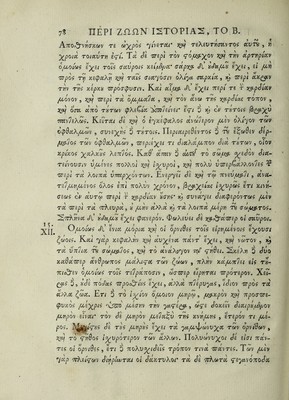 78 ΠΕΡΙ ΖΩΩΝ ΙΣΤΟΡΙΑΣ, ΤΟ Β.
Ἀποζνήσκων τε ὠχρὸς γίνεται· καὶ τελευτήσαντος αὐτοῦ, ἡ
χροιὰ τοιαύτη ἐστί. Τὰ δὲ περὶ τὸν στόμαχον καὶ τὴν ἀρτηρίαν
ὁμοίως ἔχει τοῖς σαύροις κείμενα· σάρκα δ' οὐδαμοῦ ἔχει, εἰ μὴ
πρὸς τῇ κεφαλῇ καὶ ταῖς σιαγόσιν ὀλίγα σαρκία, καὶ περὶ ἄκραν
τὴν τῆς κέρκου πρόσφυσιν. Καὶ αἷμα δ' ἔχει περί τε τὴν καρδίαν
μόνον, καὶ περὶ τὰ ὄμματα, καὶ τὸν ἄνω τῆς καρδίας τόπον,
καὶ ὅσα ἀπὸ τούτων φλέβια ἀποτείνει· ἔστι δὲ καὶ ἐν τούτοις βραχὺ
παντελῶς. Κεῖται δὲ καὶ ὁ ἐγκέφαλος ἀνώτερον μὲν ὀλίγον τῶν
ὀφθαλμῶν, συνεχὴς δὲ τούτοις. Περιαιρεθέντος δὲ τοῦ ἔξωθεν δέρματος
τῶν ὀφθαλμῶν, περιέχει τι διαλάμπον διὰ τούτων, οἷον
κρίκος χαλκοῦς λεπτός. Καθ' ἅπαν δὲ αὐτοῦ τὸ σῶμα σχεδὸν διατείνουσιν
ὑμένες πολλοὶ καὶ ἰσχυροὶ, καὶ πολὺ ὑπερβάλλοντες τῶν
περὶ τὰ λοιπὰ ὑπαρχόντων. Ἐνεργεῖ δὲ καὶ τῷ πνεύματι, ἀνατετμημένος
ὅλος ἐπὶ πολὺν χρόνον, βραχείας ἰσχυρῶς ἔτι κινήσεως
ἐν αὐτῷ περὶ τὴν καρδίαν οὔσης· καὶ συνάγει διαφερόντως μὲν
τὰ περὶ τὰ πλευρὰ, οὐ μὴν ἀλλὰ καὶ τὰ λοιπὰ μέρη τοῦ σώματος.
Σπλῆνα δ' οὐδαμοῦ ἔχει φανερόν. Φωλεύει δὲ καθάπερ οἱ σαῦροι.
15.
XII. Ὁμοίως δ' ἔνια μόρια καὶ οἱ ὄρνιθες τοῖς εἰρημένοις ἔχουσι
ζώοις. Καὶ γὰρ κεφαλὴν καὶ αὐχένα πάντ' ἔχει, καὶ νῶτον, καὶ
τὰ ὕπτια τοῦ σώματος, καὶ τὸ ἀνάλογον τοῦ στήθει. Σκέλη δὲ δύο
καθάπερ ἄνθρωπος μάλιστα τῶν ζώων, πλὴν κάμπτει εἰς τὸ
ὄπισθεν ὁμοίως τοῖς τετράποσιν, ὥσπερ εἴρηται πρότερον. Χεῖρας
δὲ, οὐδὲ πόδας προσθίους ἔχει, ἀλλὰ πτέρυγας, ἴδιον πρὸς τὰ
ἄλλα ζῶα. Ἔτι δὲ τὸ ἰσχίον ὅμοιον μηρῷ, μακρὸν καὶ προσπεφυκὸς
μέχρις ὑπὸ μέσην τὴν γαστέρα, ὥστε δοκεῖν διαιρούμενον
μηρὸν εἶναι· τὸν δὲ μηρὸν μεταξὺ τῆς κνήμης, ἕτερόν τι μέρος.
Μεγίστους δὲ τοὺς μηροὺς ἔχει τὰ γαμψώνυχα τῶν ὀρνίθων,
καὶ τὸ στῆθος ἰσχυρότερον τῶν ἄλλων. Πολυώνυχοι δέ εἰσι πάντες
οἱ ὄρνιθες, ἔτι δὲ πολυσχιδεῖς τρόπον τινὰ πάντες. Τῶν μὲν
γὰρ πλείστων διῄρηνται οἱ δάκτυλοι· τὰ δὲ πλωτὰ στεγανόποδα